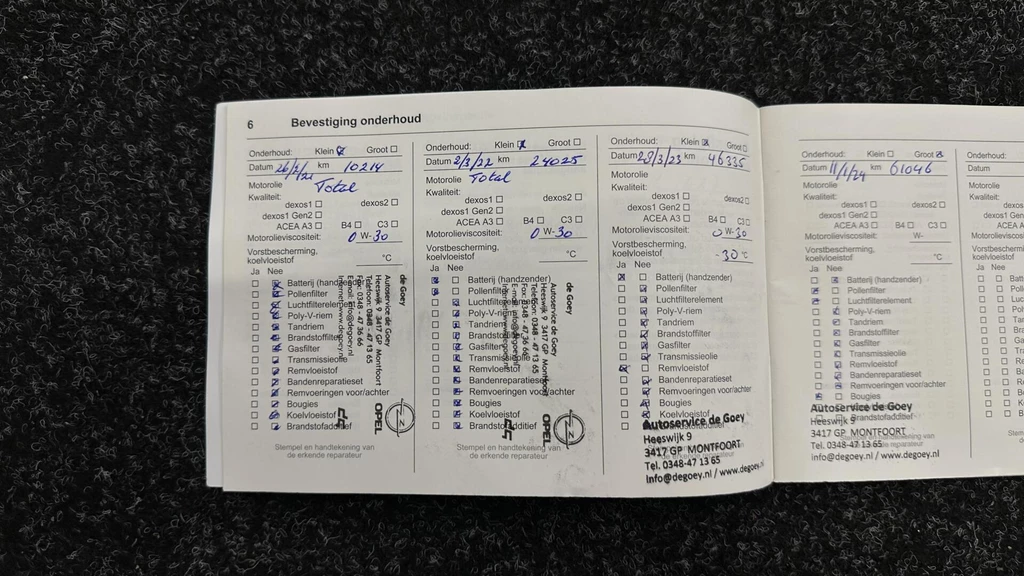 6 Bevestiging onderhoud
Onderhoud: Klein Groot
Datum 26/2/21 km 10214
Motorolie Total
Kwaliteit:
dexos1 dexos2
dexos1 Gen2
ACEA A3 B4 C3
Motorolieviscositeit: 0 W-30
Vorstbescherming,
koelvloeistof °C
Ja Nee
Batterij (handzender)
Pollenfilter
Luchtfilterelement
Poly-V-riem
Tandriem
Brandstoffilter
Gasfilter
Transmissieolie
Remvloeistof
Bandenreparatieset
Remvoeringen voor/achter
Bougies
Koelvloeistof
Brandstofadditief
Stempel en handtekening van
de erkende reparateur
de Goey
Autoservice de Goey
Heeswijk 9 3417 GP Montfoort
Telefoon: 0348 - 47 13 65
Fax: 0348 - 47 36 66
E-mail: info@degoey.nl
Internet: www.degoey.nl
OPEL
Onderhoud: Klein Groot
Datum 2/3/22 km 24025
Motorolie Total
Kwaliteit:
dexos1 dexos2
dexos1 Gen2
ACEA A3 B4 C3
Motorolieviscositeit: 0 W-30
Vorstbescherming,
koelvloeistof °C
Ja Nee
Batterij (handzender)
Pollenfilter
Luchtfilterelement
Poly-V-riem
Tandriem
Brandstoffilter
Gasfilter
Transmissieolie
Remvloeistof
Bandenreparatieset
Remvoeringen voor/achter
Bougies
Koelvloeistof
Brandstofadditief
Stempel en handtekening van
de erkende reparateur
de Goey
Autoservice de Goey
Heeswijk 9 3417 GP Montfoort
Telefoon: 0348 - 47 13 65
Fax: 0348 - 47 36 66
E-mail: info@degoey.nl
OPEL
Onderhoud: Klein Groot
Datum 28/3/23 km 46335
Motorolie
Kwaliteit:
dexos1 dexos2
dexos1 Gen2
ACEA A3 B4 C3
Motorolieviscositeit: 0 W-30
Vorstbescherming,
koelvloeistof -30 °C
Ja Nee
Batterij (handzender)
Pollenfilter
Luchtfilterelement
Poly-V-riem
Tandriem
Brandstoffilter
Gasfilter
Transmissieolie
Remvloeistof
Bandenreparatieset
Remvoeringen voor/achter
Bougies
Koelvloeistof
Autoservice de Goey
Heeswijk 9
3417 GP MONTFOORT
Tel. 0348-47 13 65
info@degoey.nl / www.degoey.nl
Onderhoud: Klein Groot
Datum 11/1/24 km 61046
Motorolie
Kwaliteit:
dexos1 dexos2
dexos1 Gen2
ACEA A3 B4 C3
Motorolieviscositeit: W-
Vorstbescherming,
koelvloeistof °C
Ja Nee
Batterij (handzender)
Pollenfilter
Luchtfilterelement
Poly-V-riem
Tandriem
Brandstoffilter
Gasfilter
Transmissieolie
Remvloeistof
Bandenreparatieset
Remvoeringen voor/achter
Bougies
Koelvloeistof
Brandstofadditief
Autoservice de Goey
Heeswijk 9
3417 GP MONTFOORT
Tel. 0348-47 13 65
info@degoey.nl / www.degoey.nl
Onderhoud:
Datum
Motorolie
Kwaliteit:
Vorstbescherming,
koelvloeistof
Ja Nee